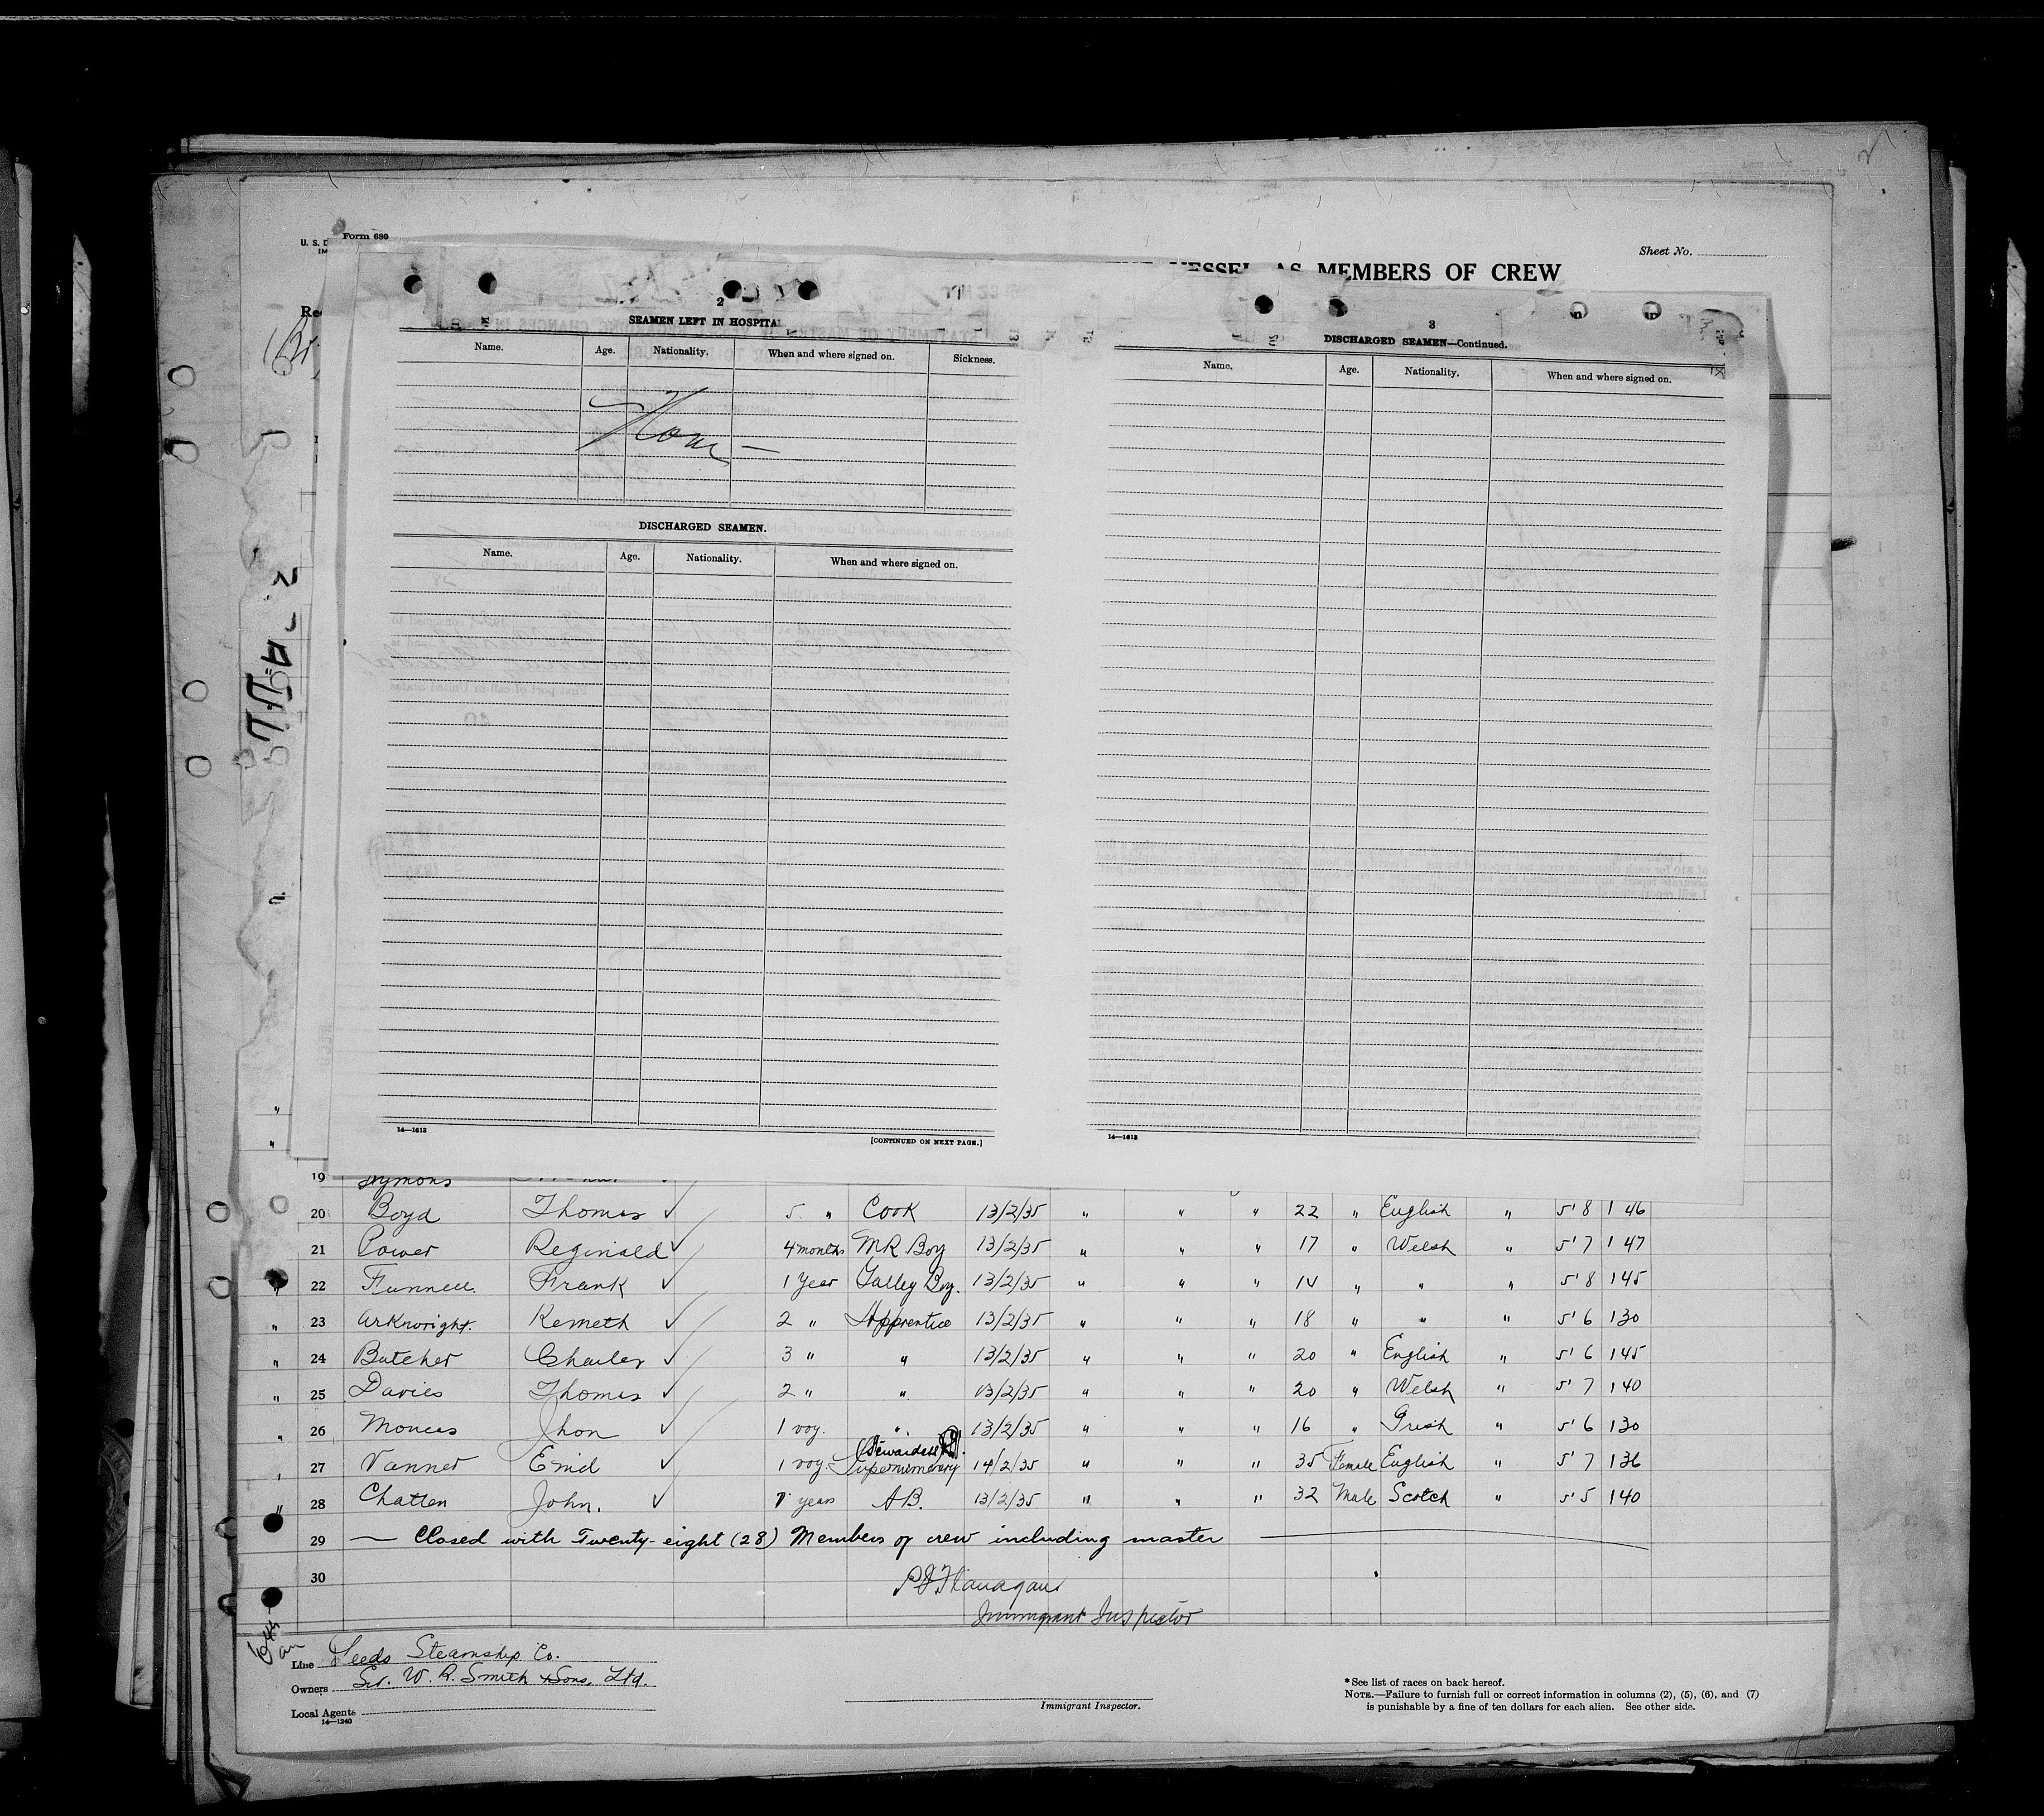 Form 680
U. S. D
IM
Sheet No.
VESSEL AS MEMBERS OF CREW
Re
2
SEAMEN LEFT IN HOSPITAL
Name. Age. Nationality. When and where signed on. Sickness.
None
DISCHARGED SEAMEN.
Name. Age. Nationality. When and where signed on.
14—1613
[CONTINUED ON NEXT PAGE.]
3
DISCHARGED SEAMEN—Continued.
Name. Age. Nationality. When and where signed on.
14—1613
19 Symons
" 20 Boyd Thomas ✓ 5 " Cook 13/2/35 " " " 22 " English " 5'8 146
21 Power Reginald ✓ 4 months MR Boy 13/2/35 " " " 17 " Welsh " 5'7 147
" 22 Funnell Frank ✓ 1 Year Galley Boy. 13/2/35 " " " " " " 5'8 145
" 23 Arkwright. Kenneth ✓ 2 " Apprentice 13/2/35 " " " 18 " " " 5'6 130
" 24 Butcher Charles ✓ 3 " " 13/2/35 " " " 20 " English " 5'6 145
" 25 Davies Thomas ✓ 2 " " 13/2/35 " " " 20 " Welsh " 5'7 140
" 26 Jhon ✓ 1 voy. " 13/2/35 " " " 16 " Irish " 5'6 130
Stewardess
" 27 Vanner Enid ✓ 1 voy. Supernumerary 14/2/35 " " " 35 Female English " 5'7 136
" 28 Chatten John. ✓ years A.B. 13/2/35 " " " 32 Male Scotch " 5'5 140
29 — Closed with Twenty-eight (28) Members of crew including master —
30 P J Flanagan
Immigrant Inspector
Line Leeds Steamship Co.
Owners Sir. W. R. Smith & Sons, Ltd.
Local Agents
14—1240
Immigrant Inspector.
*See list of races on back hereof.
NOTE.—Failure to furnish full or correct information in columns (2), (5), (6), and (7)
is punishable by a fine of ten dollars for each alien. See other side.